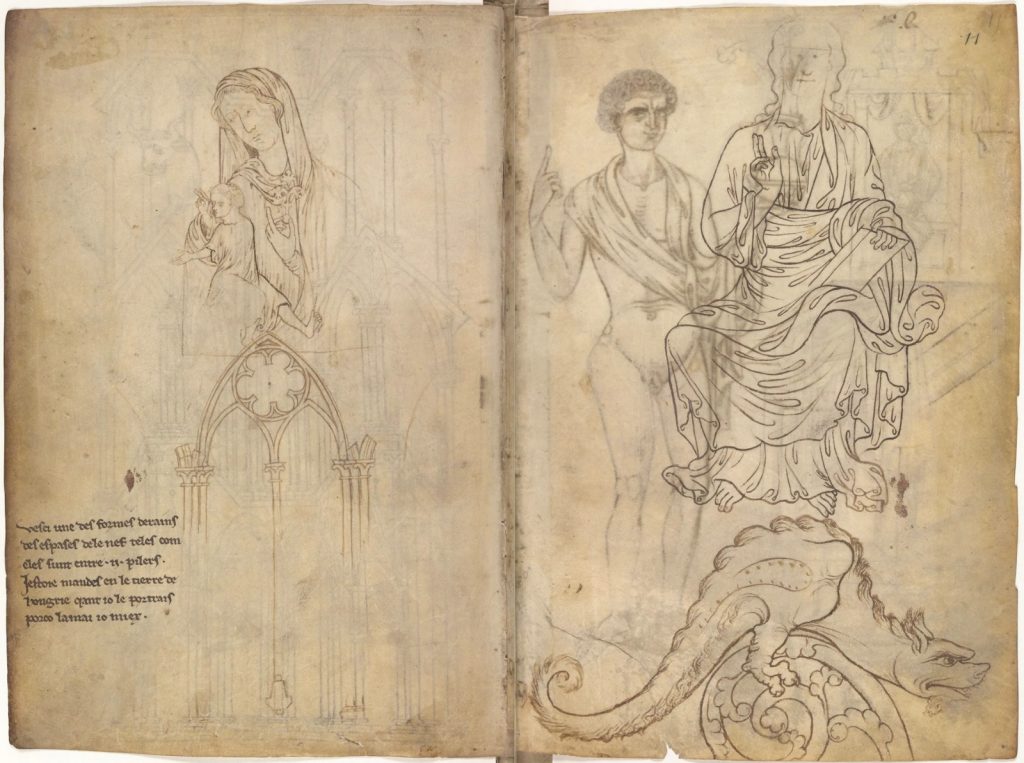 vesci une des formes derains
des espases dele nef teles com
eles sunt entre .ii. pilers.
Jestoie mandes en le tierre de
hongrie qant io le portrais
porco lamai io miex.
11